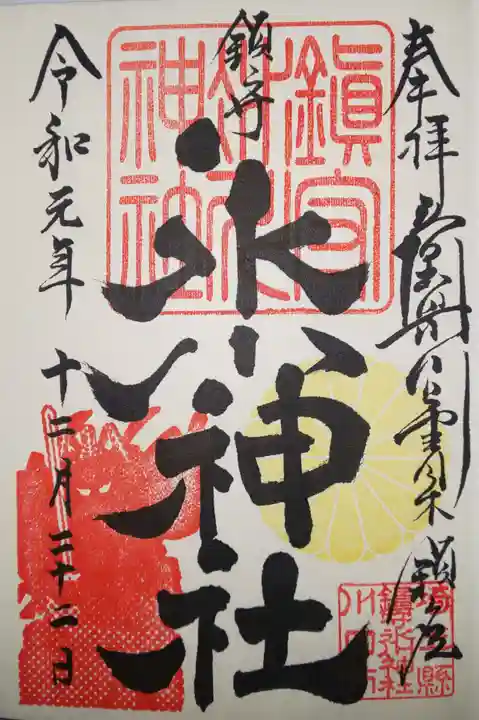 奉拝
鎮守
氷川神社
令和元年
十二月二十二日
鎮守氷川神社
埼玉縣
川口市
鎮守氷川神社